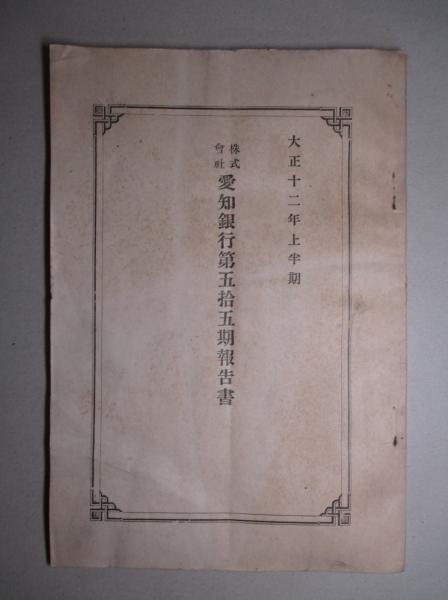 大正十二年上半期
株式會社愛知銀行第五拾五期報告書